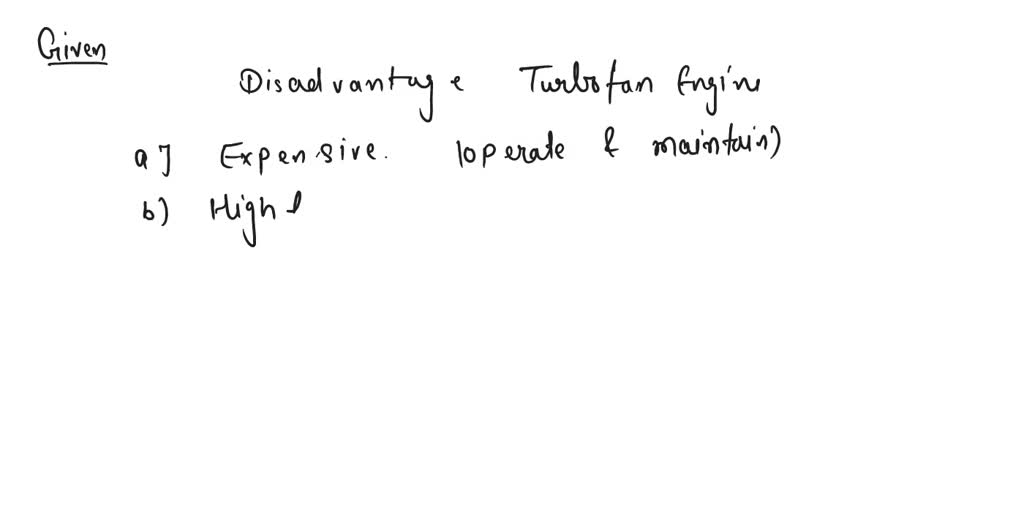 Given
Disadvantage Turbofan Engine
a] Expensive. (operate & maintain)
b) High